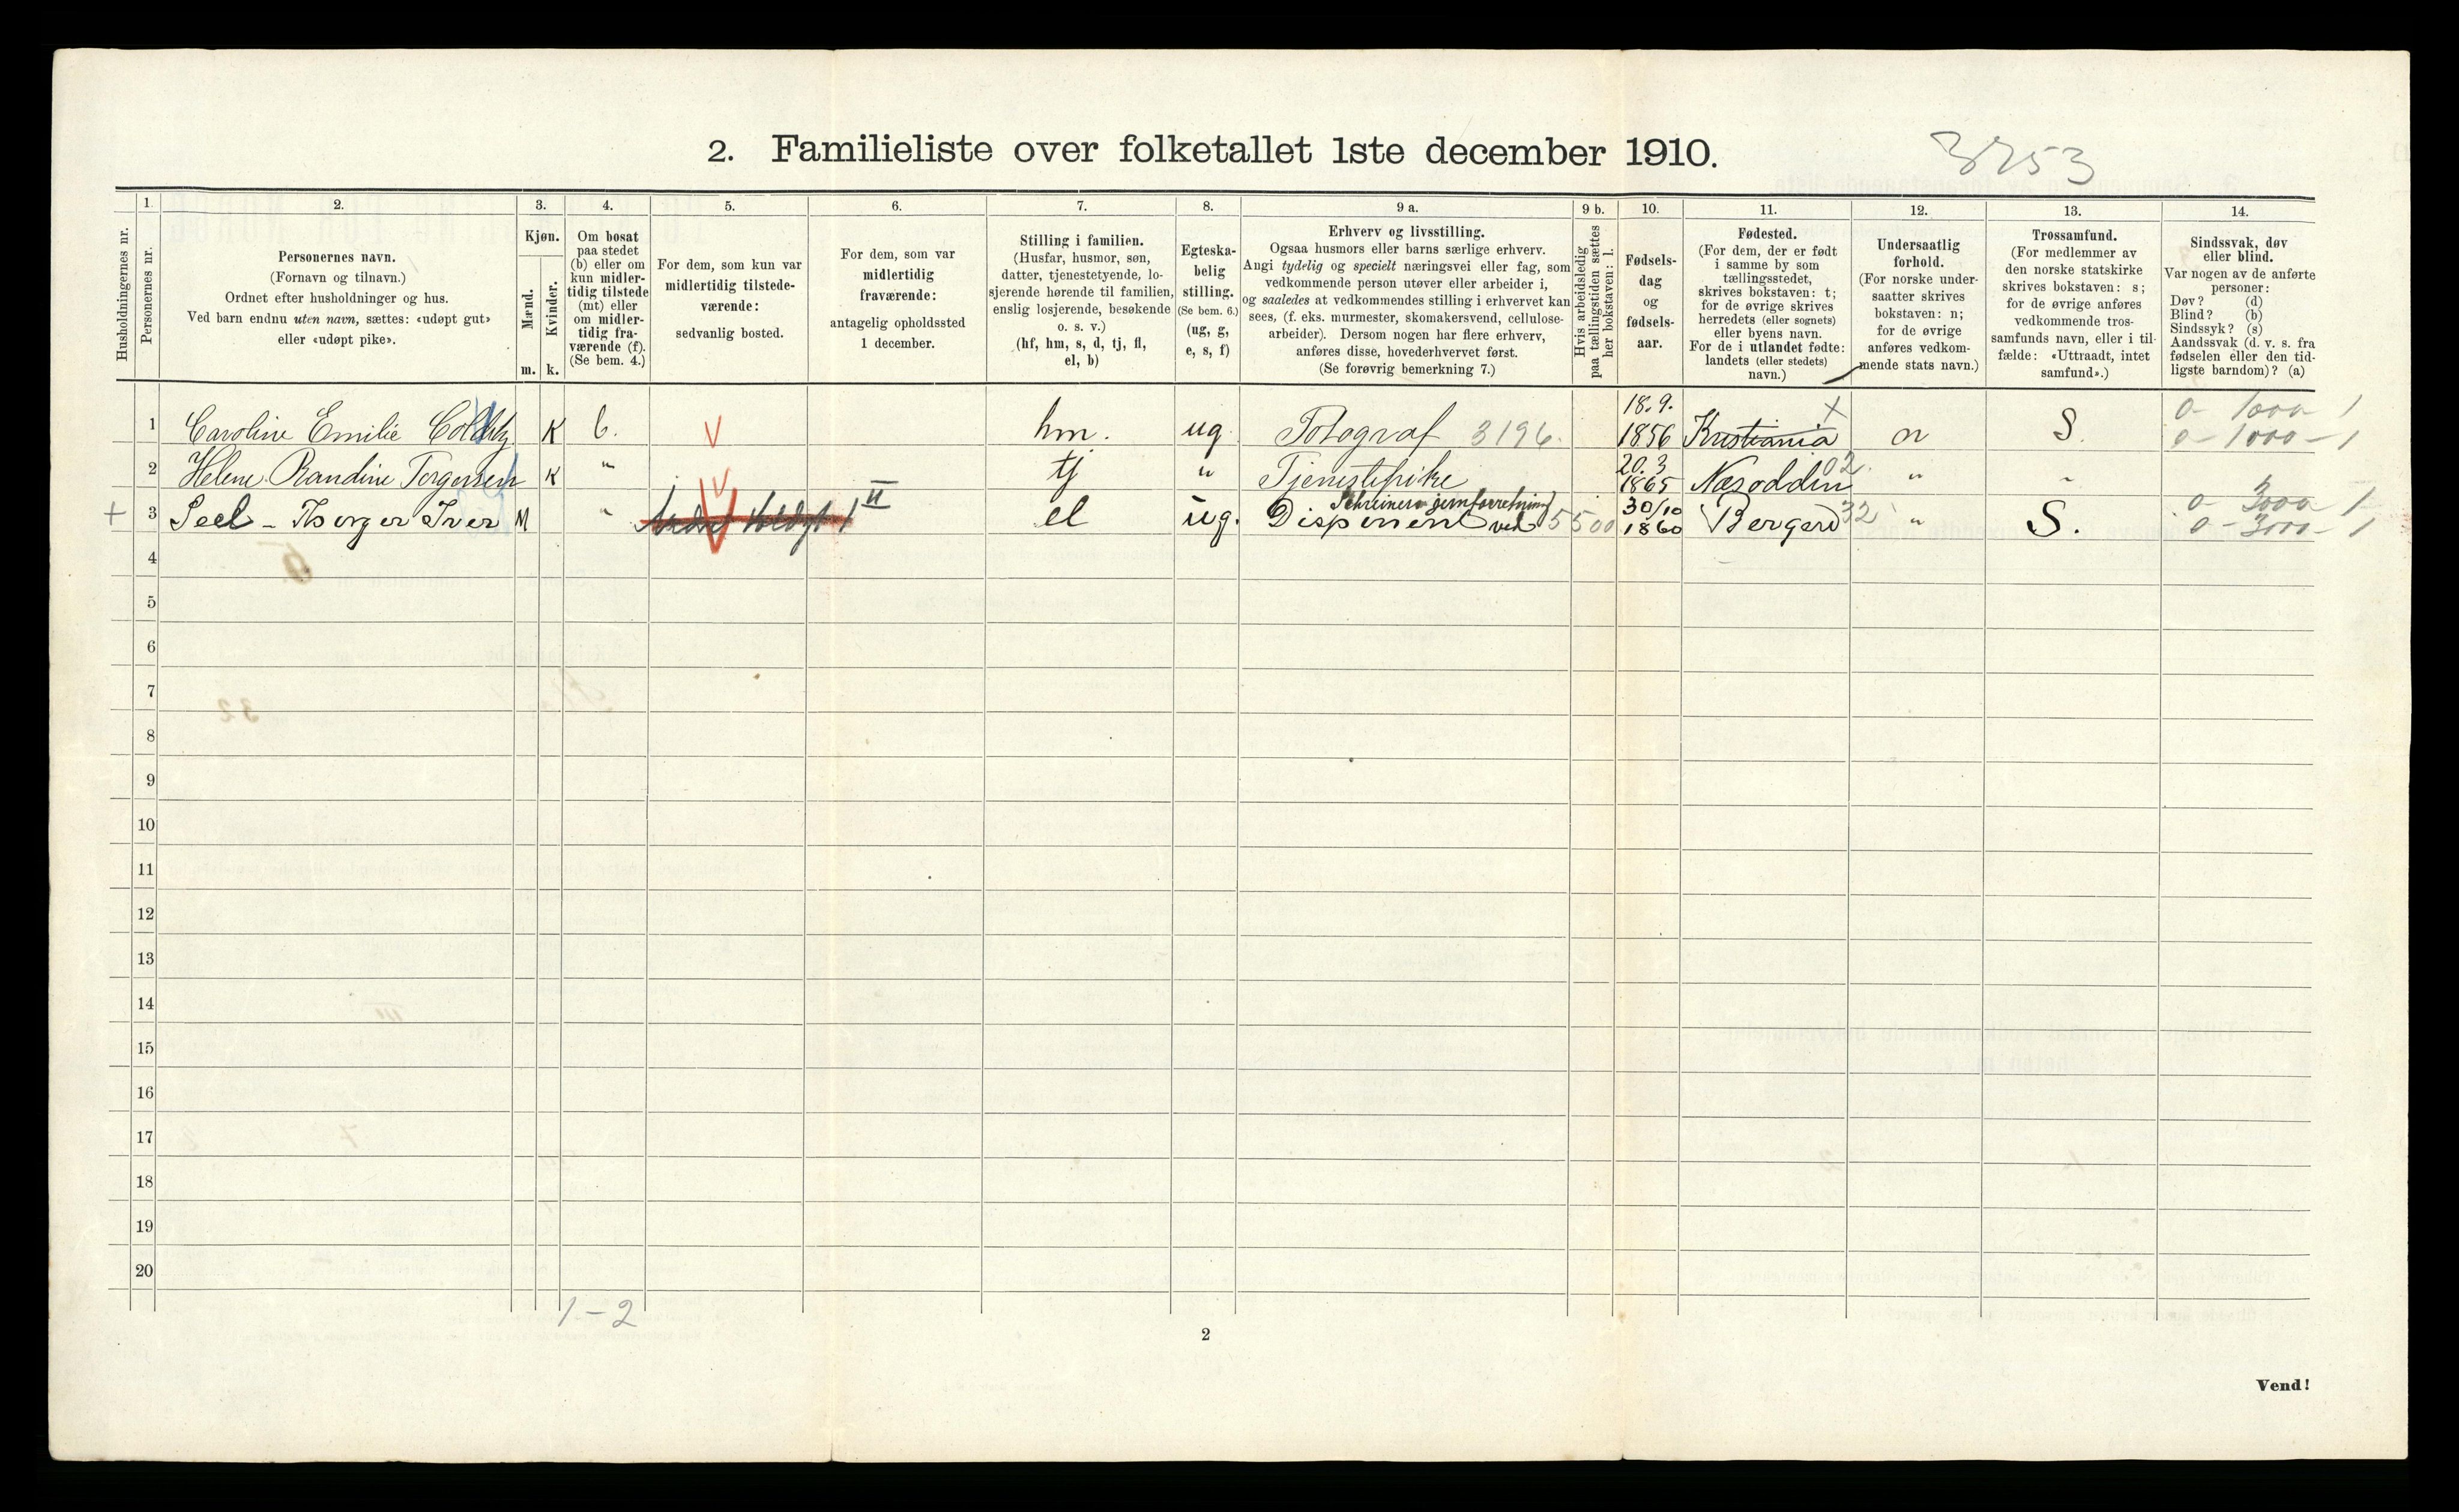 2. Familieliste over folketallet 1ste december 1910.
3253
Husholdningernes nr.
1.
Personernes nr.
2.
Personernes navn.
(Fornavn og tilnavn.)
Ordnet efter husholdninger og hus.
Ved barn endnu uten navn, sættes: «udøpt gut»
eller «udøpt pike».
3.
Kjøn.
Mænd.
Kvinder.
m. k.
4.
Om bosat
paa stedet
(b) eller om
kun midler-
tidig tilstede
(mt) eller
om midler-
tidig fra-
værende (f).
(Se bem. 4.)
5.
For dem, som kun var
midlertidig tilstede-
værende:
sedvanlig bosted.
6.
For dem, som var
midlertidig
fraværende:
antagelig opholdssted
1 december.
7.
Stilling i familien.
(Husfar, husmor, søn,
datter, tjenestetyende, lo-
sjerende hørende til familien,
enslig losjerende, besøkende
o. s. v.)
(hf, hm, s, d, tj, fl,
el, b)
8.
Egteska-
belig
stilling.
(Se bem. 6.)
(ug, g,
e, s, f)
9 a.
Erhverv og livsstilling.
Ogsaa husmors eller barns særlige erhverv.
Angi tydelig og specielt næringsvei eller fag, som
vedkommende person utøver eller arbeider i,
og saaledes at vedkommendes stilling i erhvervet kan
sees, (f. eks. murmester, skomakersvend, cellulose-
arbeider). Dersom nogen har flere erhverv,
anføres disse, hovederhvervet først.
(Se forøvrig bemerkning 7.)
9 b.
Hvis arbeidsledig
paa tællingstiden sættes
her bokstaven: l.
10.
Fødsels-
dag
og
fødsels-
aar.
11.
Fødested.
(For dem, der er født
i samme by som
tællingsstedet,
skrives bokstaven: t;
for de øvrige skrives
herredets (eller sognets)
eller byens navn.
For de i utlandet fødte:
landets (eller stedets)
navn.)
12.
Undersaatlig
forhold.
(For norske under-
saatter skrives
bokstaven: n;
for de øvrige
anføres vedkom-
mende stats navn.)
13.
Trossamfund.
(For medlemmer av
den norske statskirke
skrives bokstaven: s;
for de øvrige anføres
vedkommende tros-
samfunds navn, eller i til-
fælde: «Uttraadt, intet
samfund».)
14.
Sindssvak, døv
eller blind.
Var nogen av de anførte
personer:
Døv? (d)
Blind? (b)
Sindssyk? (s)
Aandssvak (d. v. s. fra
fødselen eller den tid-
ligste barndom)? (a)
1 Caroline Emilie K b. hm. ug. Fotograf 3196. 18.9. 1856 Kristiania n S. 0 - 1000 - 1
0 - 1000 - 1
2 Helene Randine Torgersen K " tj " Tjenestepike 20.3 1865 Næsodden 02. " "
+ 3 Seel - Thorger Iver M " II el ug. Disponent ved Schreiners jernforretning 5500 30/10 1860 Bergen 32 " S. 0 - 3000 - 1
0 - 3000 - 1
4
5
6
7
8
9
10
11
12
13
14
15
16
17
18
19
20
1 - 2
2
Vend!